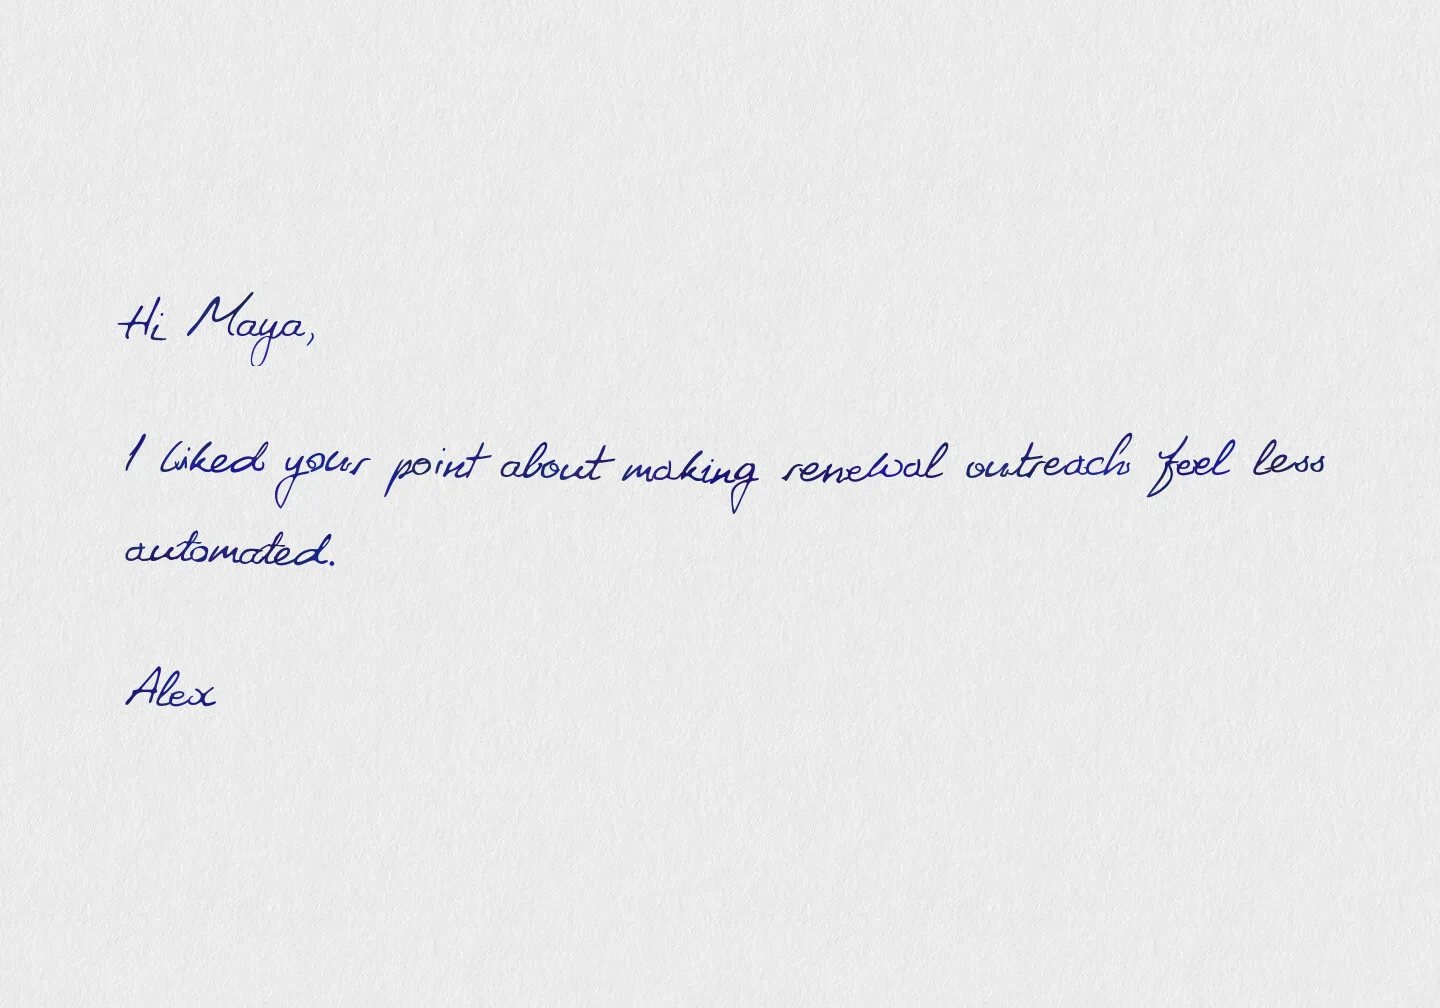 Hi Maya,
I liked your point about making renewal outreach feel less
automated.
Alex